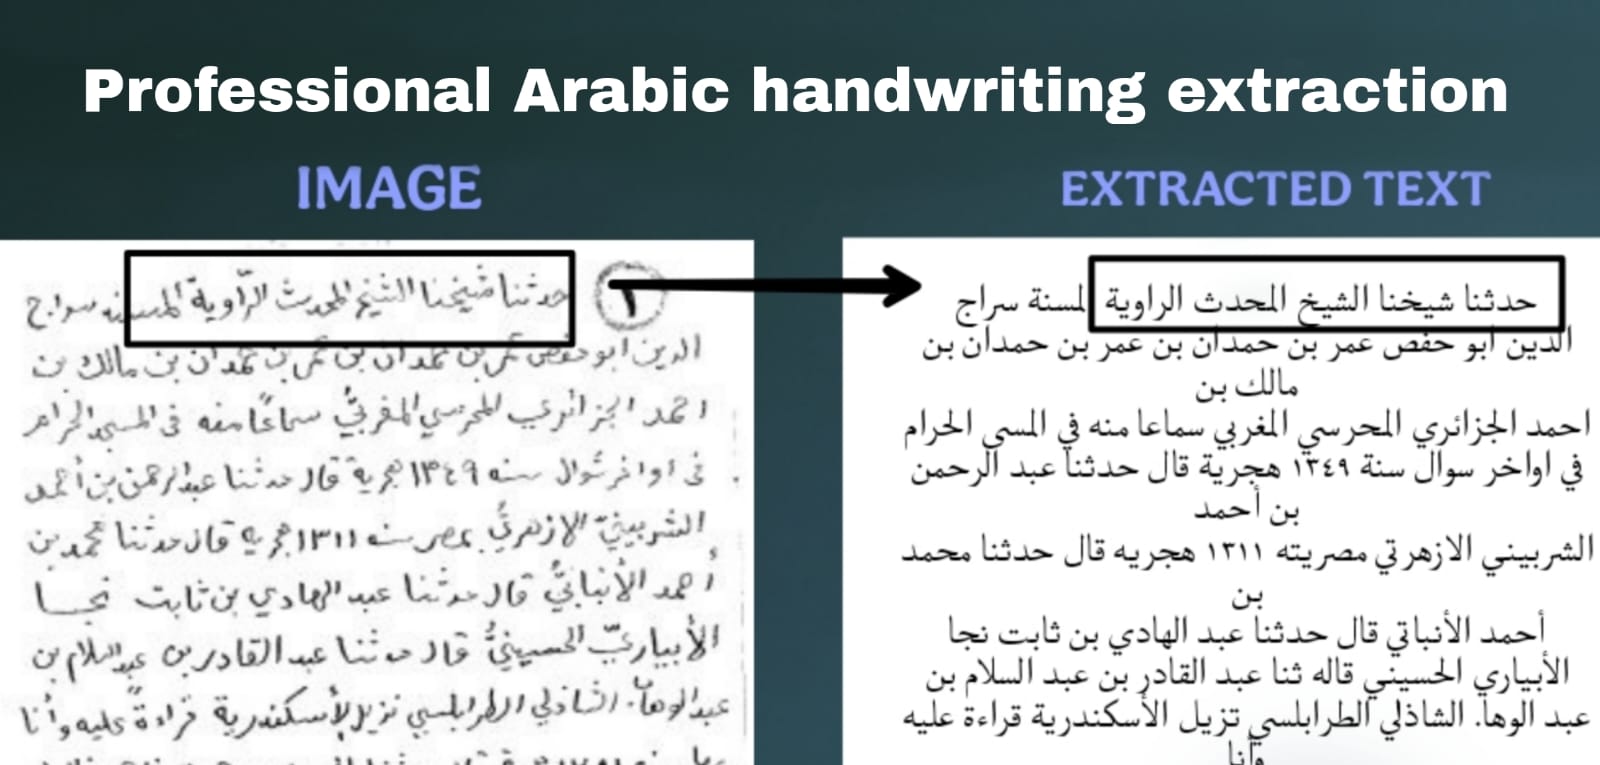 Professional Arabic handwriting extraction
IMAGE
EXTRACTED TEXT
١
حدثنا شيخنا الشيخ المحدث الراوية المسنه سراج
الدين ابو حفص عمر بن حمدان بن عمر بن حمدان بن مالك بن
احمد الجزائري المحرسي المغربيُّ سماعًا منه فى المسجد الحرام
فى اواخر شوال سنه ١٣٤٩ هجرية قال حدثنا عبد الرحمن بن أحمد
الشربينيّ الازهريُّ بمصر سنه ١٣١١ هجريه قال حدثنا محمد بن
أحمد الأنبابيُّ قال حدثنا عبد الهادي بن ثابت نجا
الأبياريّ الحسينيُّ قال حدثنا عبد القادر بن عبد السلام بن
عبد الوهاب الشاذلي الطرابلسي نزيل الأسكندرية قراءةً عليه وأنا
حدثنا شيخنا الشيخ المحدث الراوية لمسنة سراج
الدين ابو حفص عمر بن حمدان بن عمر بن حمدان بن
مالك بن
احمد الجزائري المحرسي المغربي سماعا منه في المسي الحرام
في اواخر سوال سنة ١٣٤٩ هجرية قال حدثنا عبد الرحمن
بن أحمد
الشربيني الازهرتي مصريته ١٣١١ هجريه قال حدثنا محمد
بن
أحمد الأنباتي قال حدثنا عبد الهادي بن ثابت نجا
الأبياري الحسيني قاله ثنا عبد القادر بن عبد السلام بن
عبد الوها. الشاذلي الطرابلسي تزيل الأسكندرية قراءة عليه
وأنا